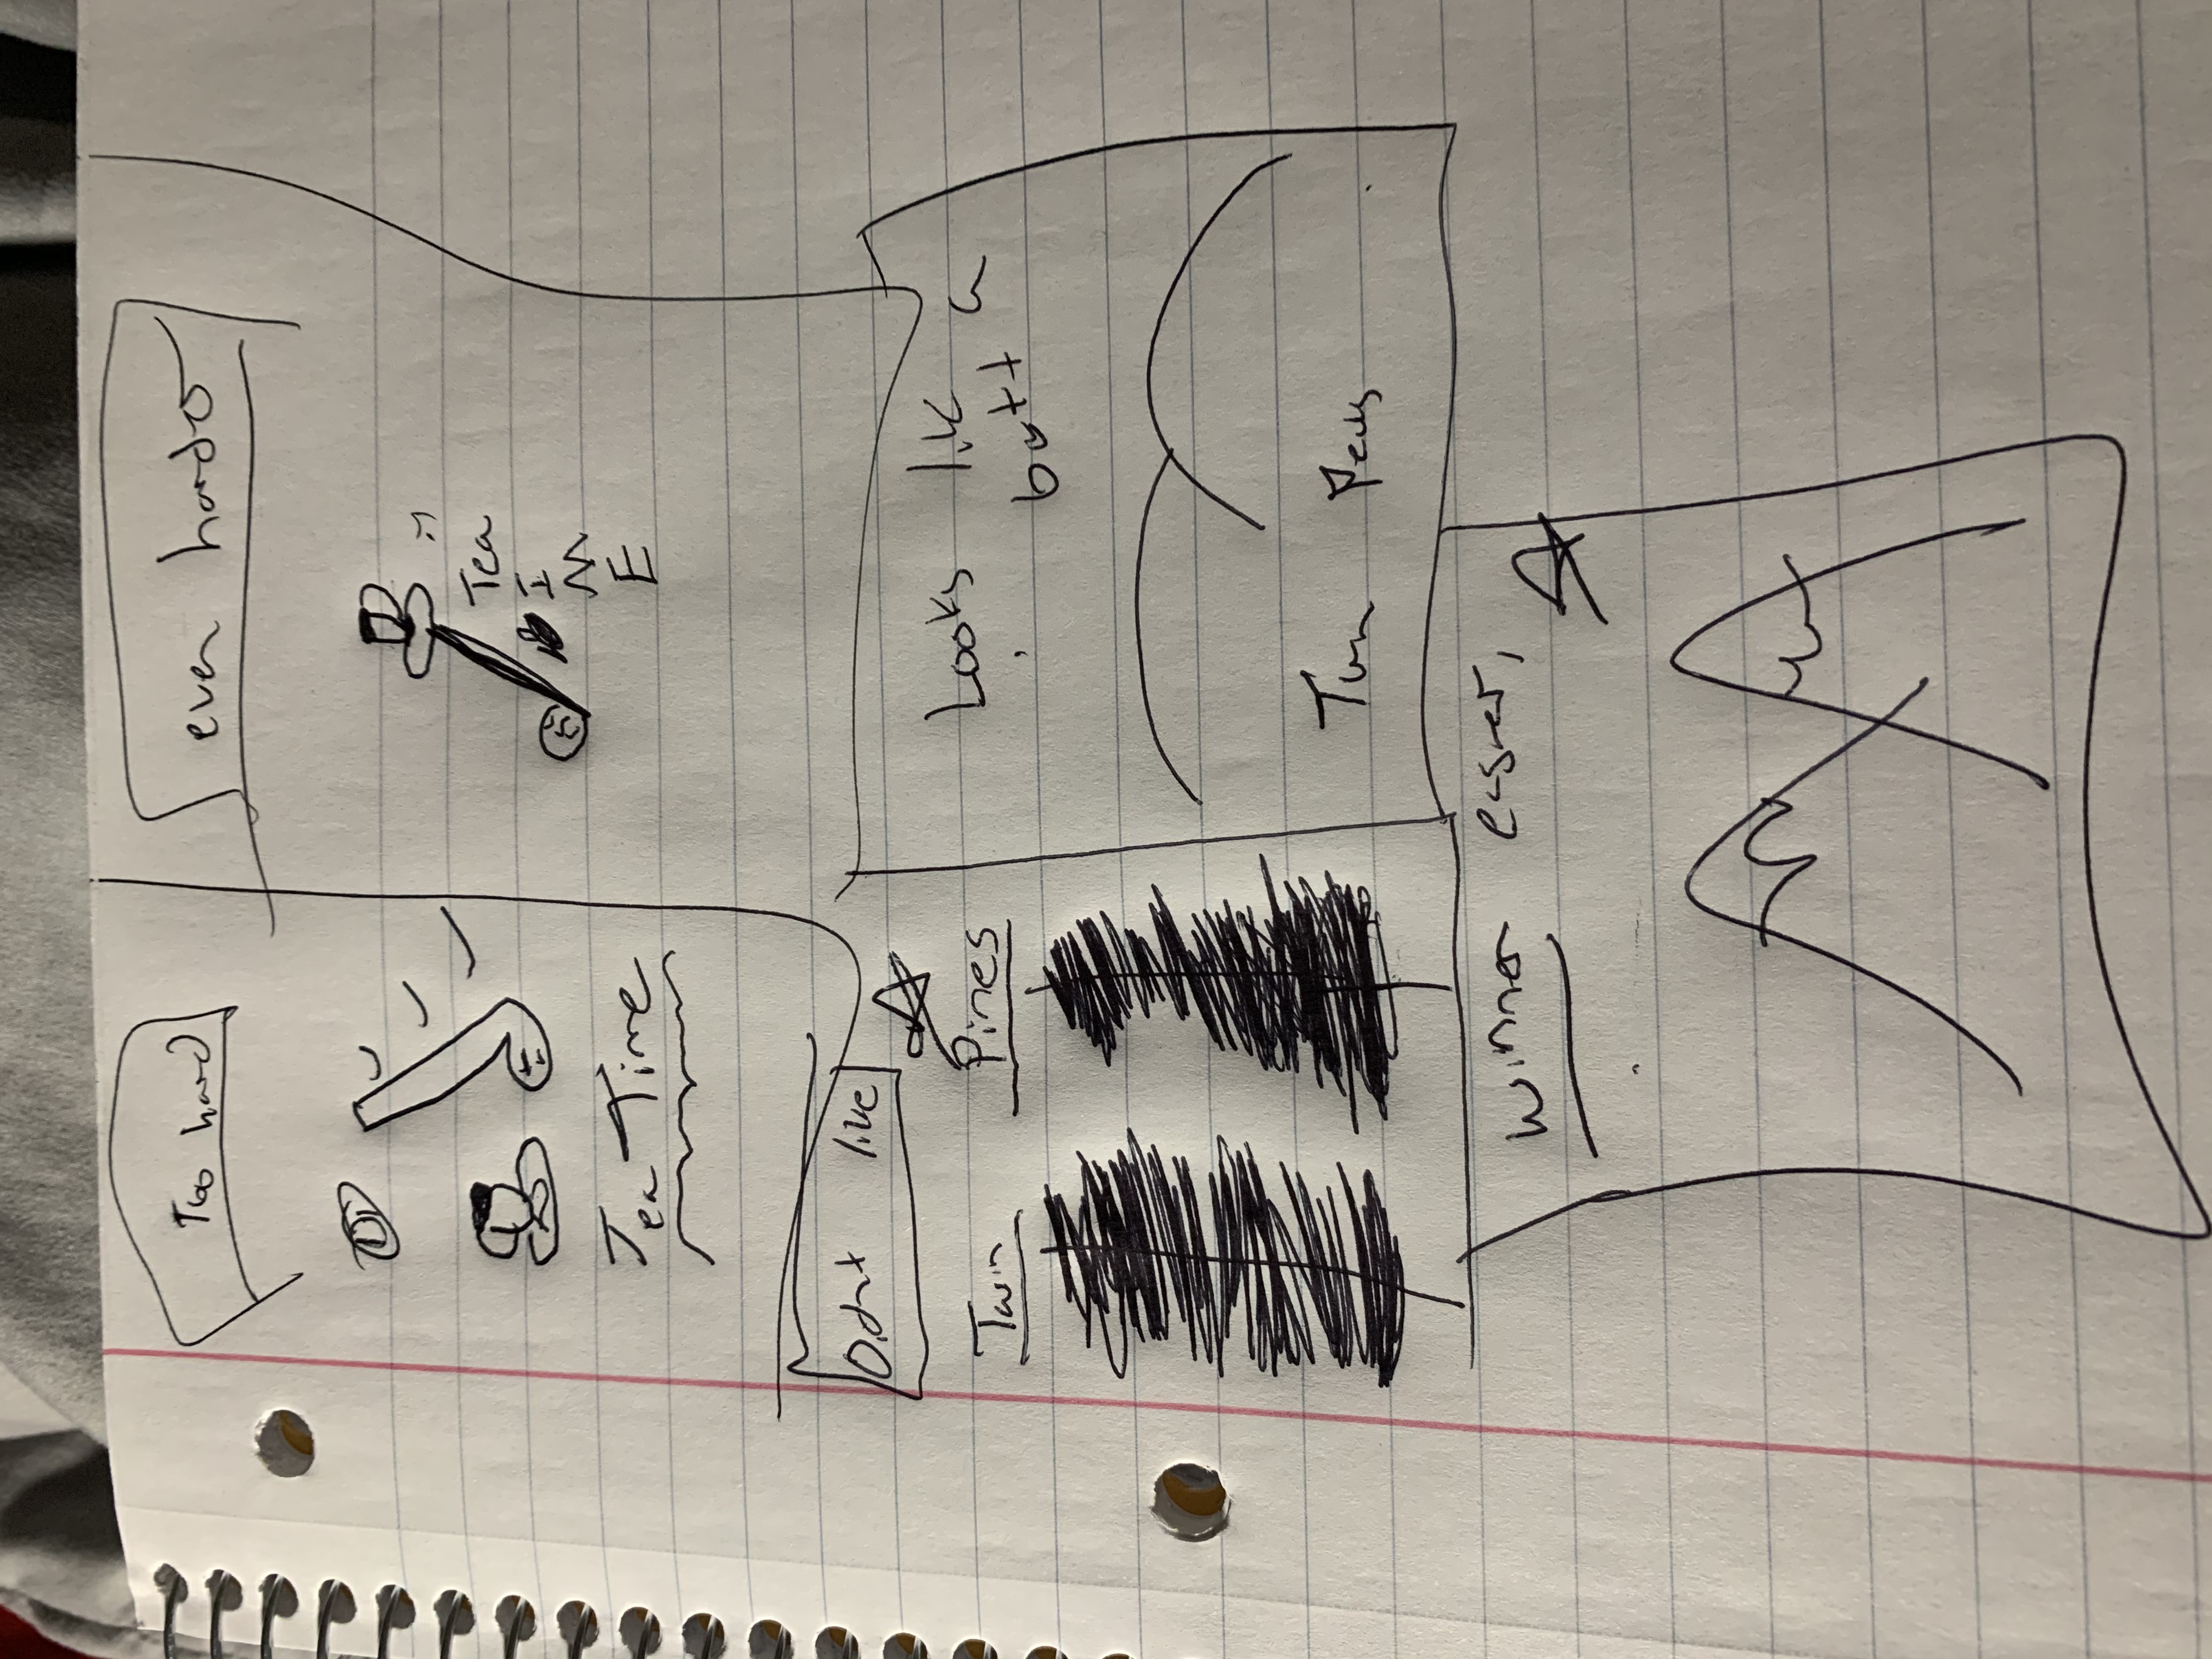 Too hard
even harder
:)
Tea
I
M
E
Tea Time
Didnt like
Twin Pines
Looks lik a
butt
Twin Peaks
Winner easier,